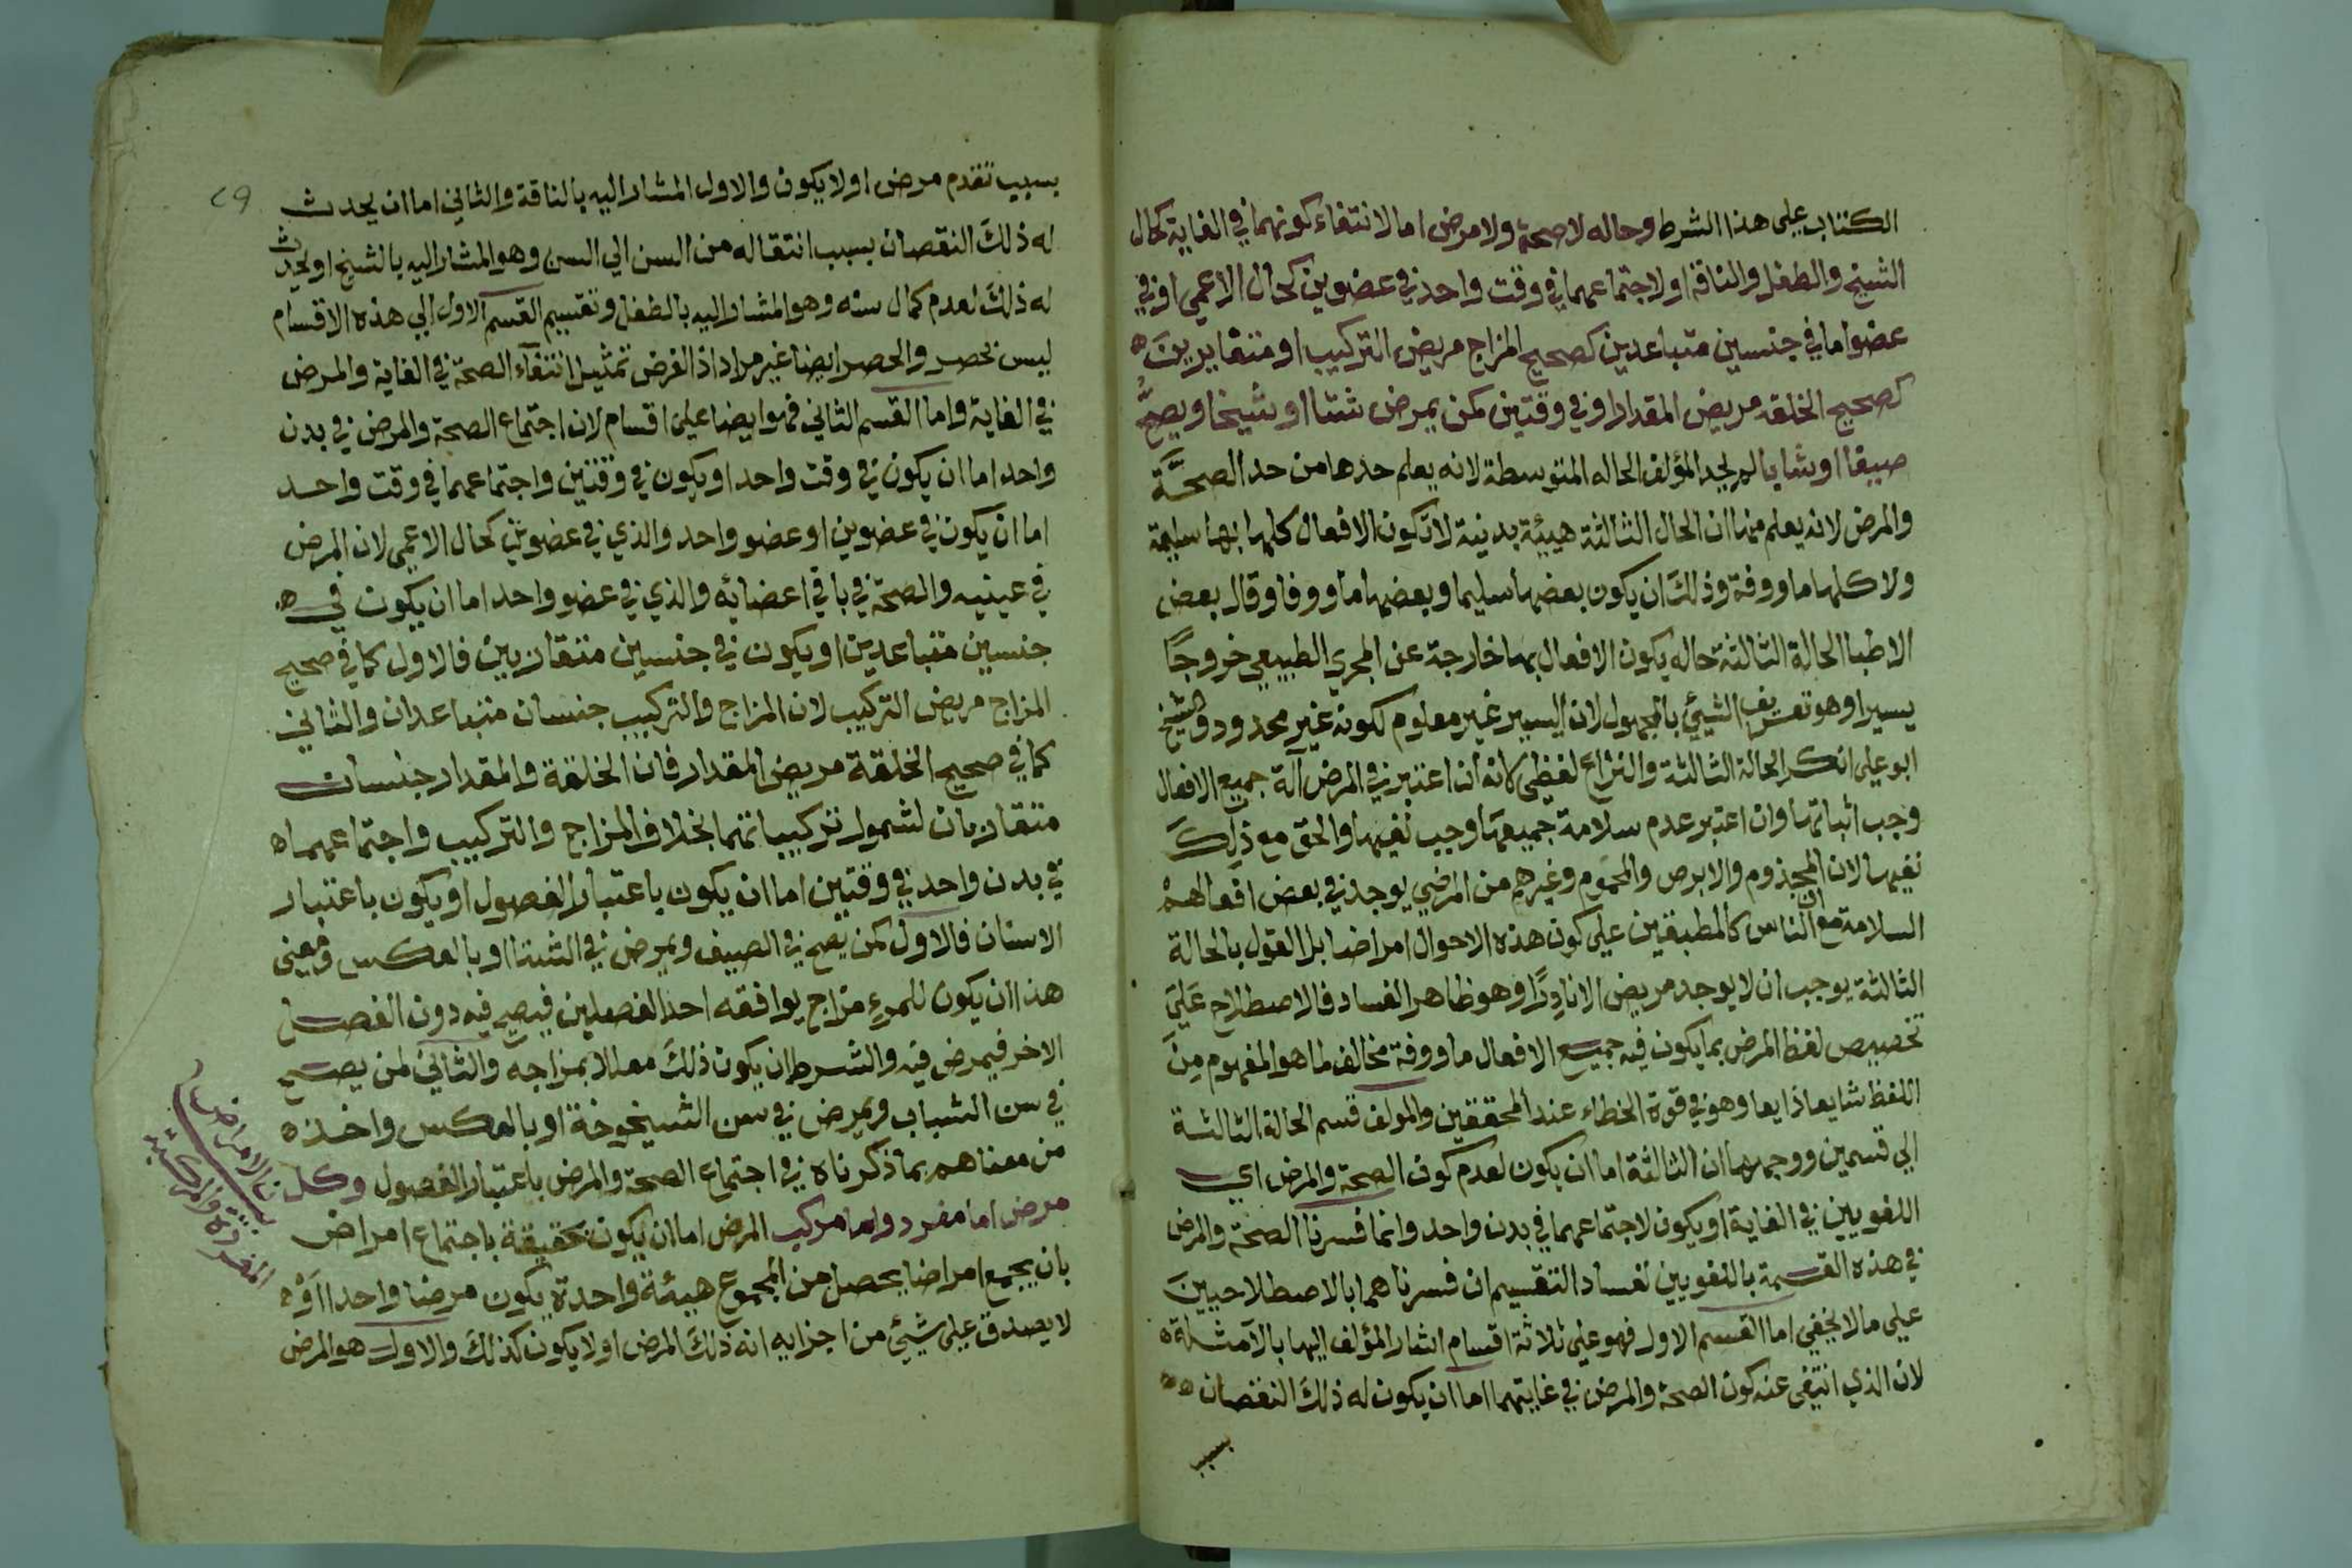 الكتاب على هذا الشرط وحاله لا صحة ولا مرض اما لانتفاء كونهما في الغاية كحال
الشيخ والطفل والناقه او لاجتماعهما في وقت واحد في عضوين كحال الاعمي او في
عضو اما في جنسين متباعدين كصحيح المزاج مريض التركيب او متقاربين
كصحيح الخلقه مريض المقدار او في وقتين كمن يمرض شتا او شيخا ويصح
صيفا او شابا لم يحد المؤلف الحاله المتوسطة لانه يعلم حدها من حد الصحة
والمرض لانه يعلم منها ان الحال الثالثة هيئة بدنية لا تكون الافعال كلها بها سليمة
ولا كلها ماووفة وذلك ان يكون بعضها سليما وبعضها ماووفا وقال بعض
الاطبا الحالة الثالثة حاله يكون الافعال بها خارجة عن المجري الطبيعي خروجًا
يسيرا وهو تعريف الشيئ بالمجهول لان اليسير غير معلوم لكونه غير محدود والشيخ
ابو علي انكر الحالة الثالثة والنزاع لفظي لانه ان اعتبر في المرض آفة جميع الافعال
وجب اثباتها وان اعتبر عدم سلامة جميعها وجب نفيها والحق مع ذلك
نفيها لان المجذوم والابرص والمحموم وغيرهم من المرضي يوجد في بعض افعالهم
السلامة مع ان الناس كالمطبقين علي كون هذه الاحوال امراضا بل القول بالحالة
الثالثة يوجب ان لا يوجد مريض الا نادرًا وهو ظاهر الفساد فالاصطلاح علي
تخصيص لفظ المرض بما يكون فيه جميع الافعال ماووفة مخالف لما هو المفهوم من
اللفظ شايعا ذايعا وهو في قوة الخطاء عند المحققين والمولف قسم الحالة الثالثة
الي قسمين ووجهها ان الثالثة اما ان يكون لعدم كون الصحة والمرض اي
اللغويين في الغاية او يكون لاجتماعهما في بدن واحد وانما فسرنا الصحة والمرض
في هذه القسمة باللغويين لفساد التقسيم ان فسرناهما بالاصطلاحيين
علي ما لا يخفي اما القسم الاول فهو علي ثلاثة اقسام اشار المؤلف اليها بالامثلة
لان الذي انتفى عنه كون الصحة والمرض في غايتهما اما ان يكون له ذلك النقصان
بسبب
٢٩
بسبب تقدم مرض او لا يكون والاول المشار اليه بالناقة والثاني اما ان يحدث
له ذلك النقصان بسبب انتقاله من السن الي السن وهو المشار اليه بالشيخ او يحدث
له ذلك لعدم كمال سنه وهو المشار اليه بالطفل وتقسيم القسم الاول الي هذه الاقسام
ليس بحصر والحصر ايضا غير مراد اذ الغرض تمثيل انتفاء الصحة في الغاية والمرض
في الغاية واما القسم الثاني فهو ايضا علي اقسام لان اجتماع الصحة والمرض في بدن
واحد اما ان يكون في وقت واحد او يكون في وقتين واجتماعهما في وقت واحد
اما ان يكون في عضوين او عضو واحد والذي في عضوين كحال الاعمي لان المرض
في عينيه والصحة في باقي اعضائه والذي في عضو واحد اما ان يكون في
جنسين متباعدين او يكون في جنسين متقاربين فالاول كما في صحيح
المزاج مريض التركيب لان المزاج والتركيب جنسان متباعدان والثاني
كما في صحيح الخلقة مريض المقدار فان الخلقة والمقدار جنسان
متقاربان لشمول تركيباتهما بخلاف المزاج والتركيب واجتماعهما
في بدن واحد في وقتين اما ان يكون باعتبار الفصول او يكون باعتبار
الاسنان فالاول كمن يصح في الصيف ويمرض في الشتا او بالعكس ومعني
هذا ان يكون للمرء مزاج يوافقه احد الفصلين فيصح فيه دون الفصل
الاخر فيمرض فيه والشرط ان يكون ذلك معللا بمزاجه والثاني لمن يصح
في سن الشباب ويمرض في سن الشيخوخة او بالعكس واخذه
من معناهم بما ذكرناه في اجتماع الصحة والمرض باعتبار الفصول وكل
مرض اما مفرد واما مركب المرض اما ان يكون تحقيقة باجتماع امراض
بان يجمع امراضا يحصل من المجموع هيئة واحدة يكون مرضا واحدا او
لا يصدق علي شيئ من اجزايه انه ذلك المرض او لا يكون كذلك والاول هو المرض
الامراض
المفردة والمركبة